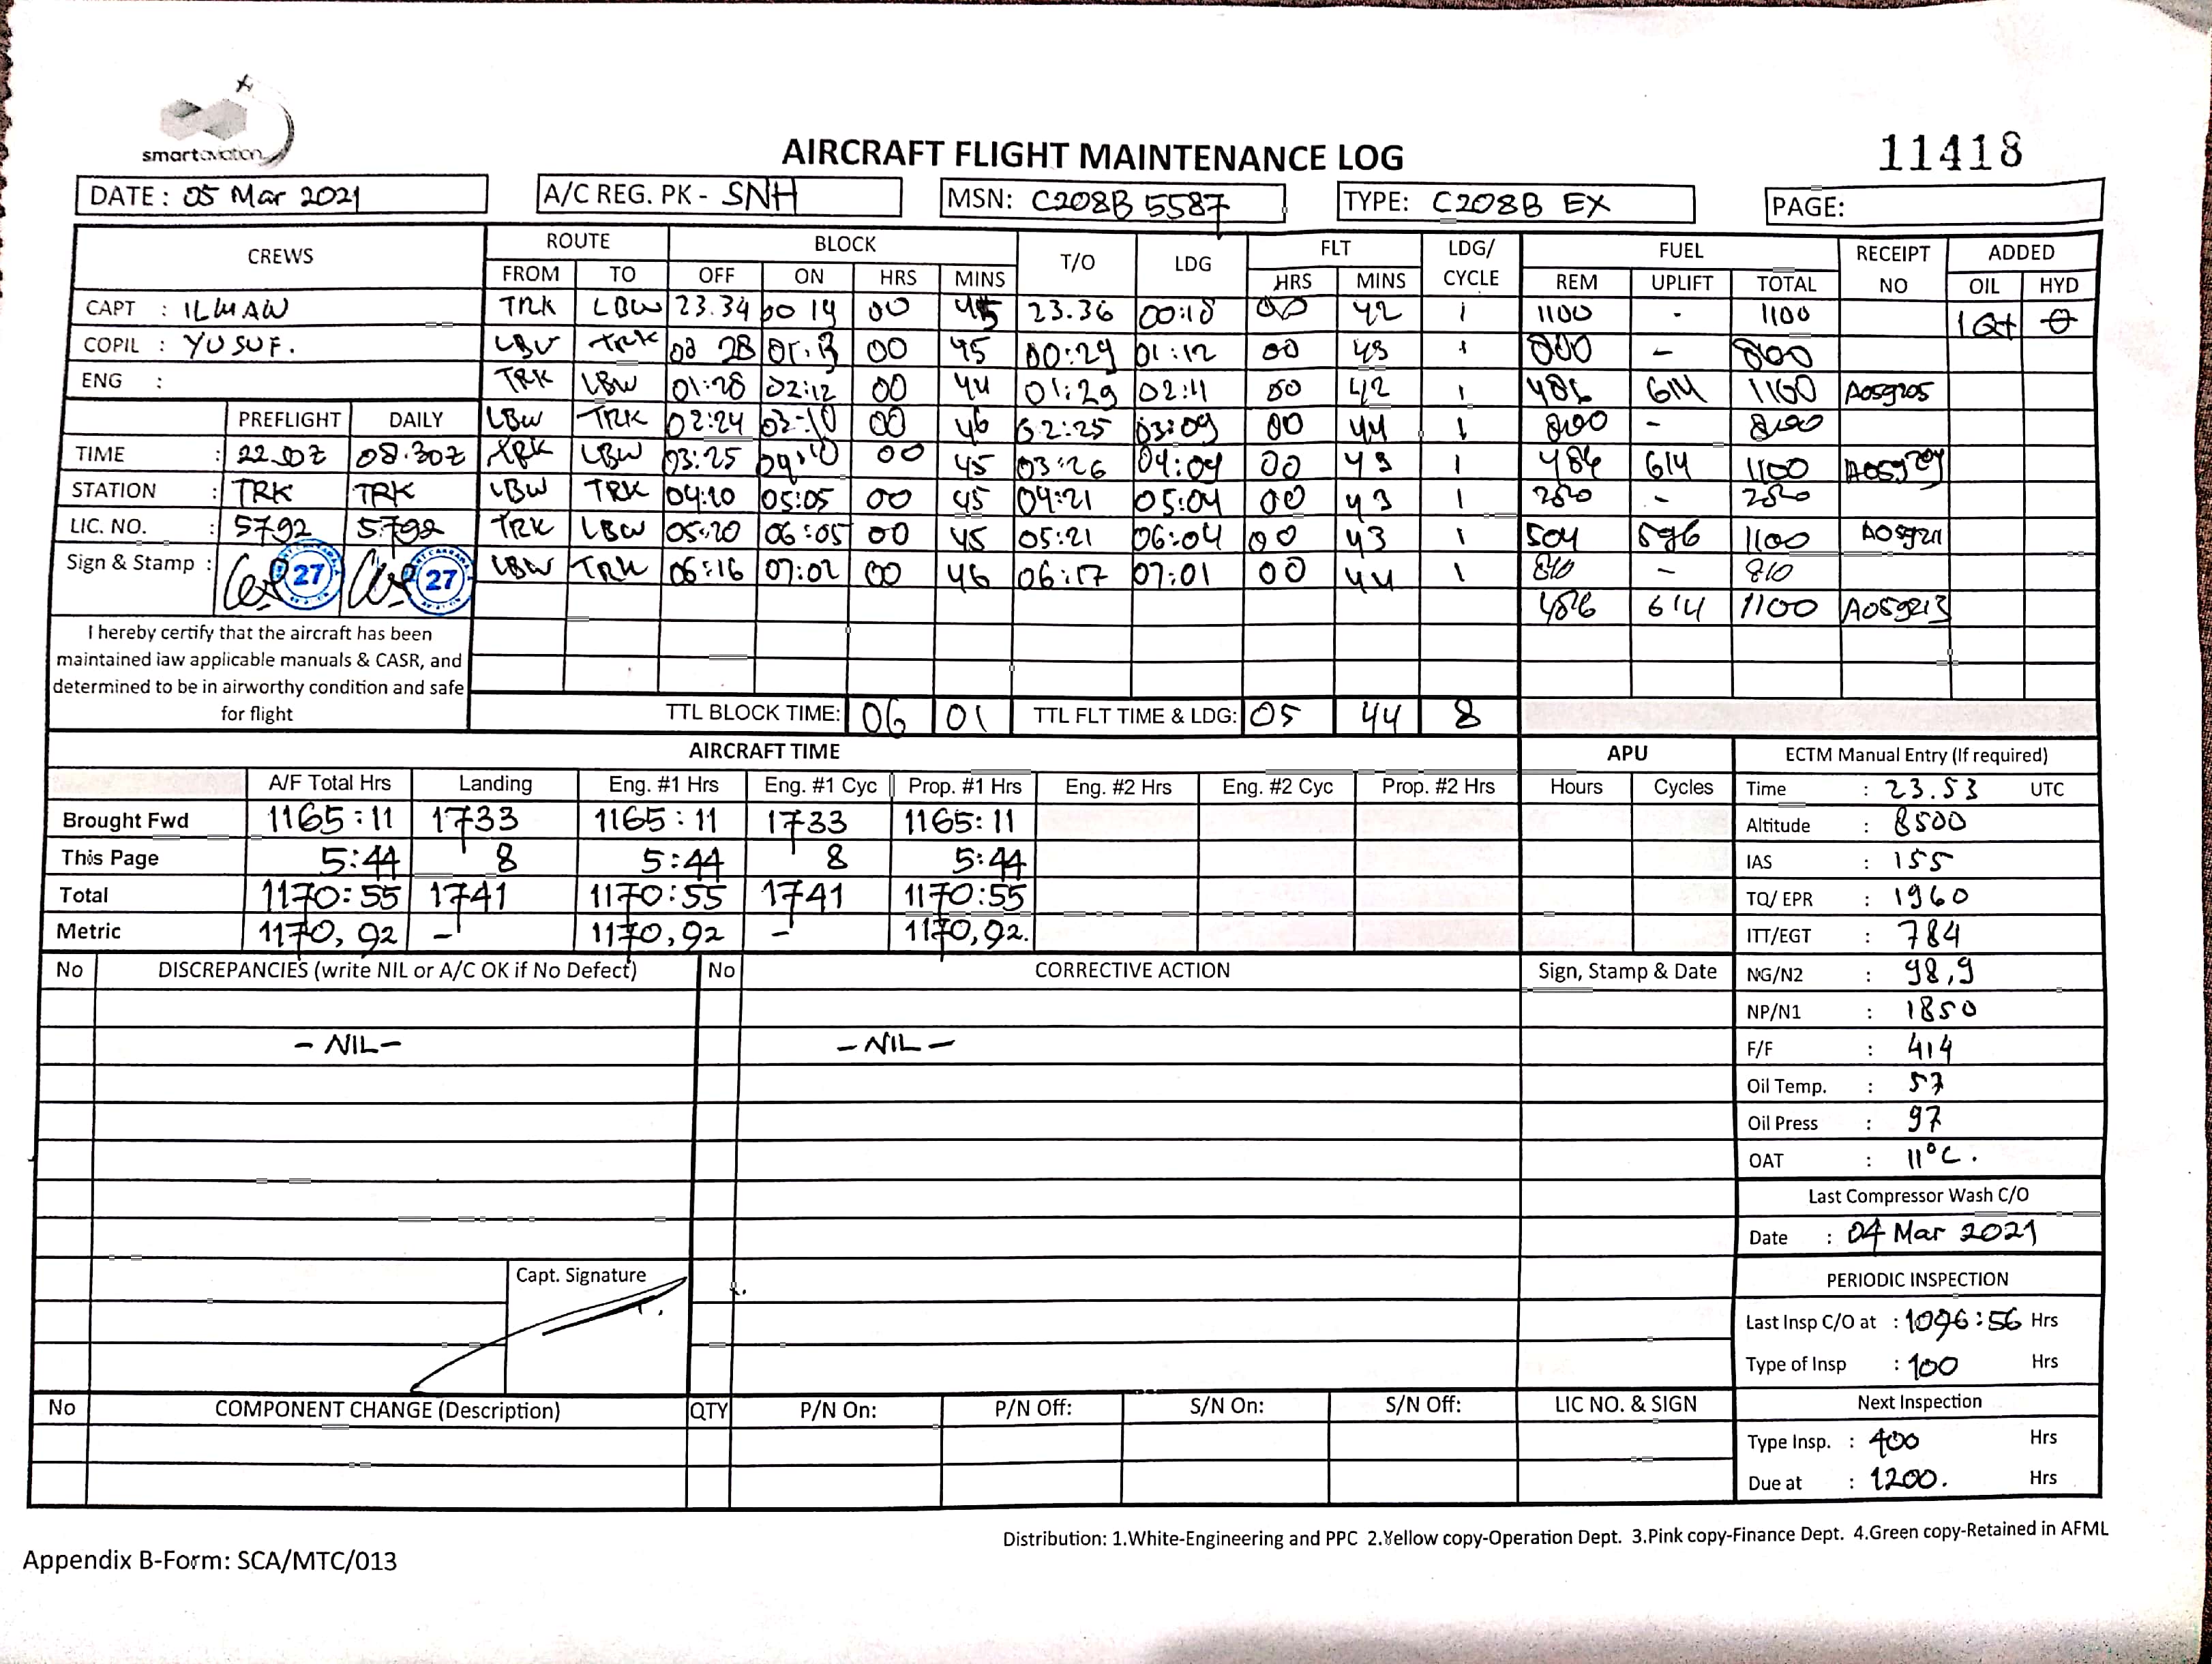 smartaviation
AIRCRAFT FLIGHT MAINTENANCE LOG
11418
DATE : 05 Mar 2021 A/C REG. PK - SNH MSN: C208B 5587 TYPE: C208B EX PAGE:
CREWS ROUTE BLOCK T/O LDG FLT LDG/ CYCLE FUEL RECEIPT NO ADDED
FROM TO OFF ON HRS MINS HRS MINS REM UPLIFT TOTAL OIL HYD
CAPT : ILMAN TRK LBW 23.34 00 19 00 45 23.36 00:18 00 42 1 1100 - 1100 1Qt
COPIL : YUSUF. LBW TRK 00 28 01:13 00 45 00:29 01:12 00 43 1 800 - 800
ENG : TRK LBW 01:28 02:12 00 44 01:29 02:11 00 42 1 486 614 1100 A059205
PREFLIGHT DAILY LBW TRK 02:24 03:10 00 46 02:25 03:09 00 44 1 800 - 800
TIME : 22.00Z 08.30Z TRK LBW 03:25 04:10 00 45 03:26 04:09 00 43 1 486 614 1100
STATION : TRK TRK LBW TRK 04:20 05:05 00 45 04:21 05:04 00 43 1 -
LIC. NO. : 5792 5792 TRK LBW 05:20 06:05 00 45 05:21 06:04 00 43 1 504 596 1100 A059211
Sign & Stamp : 27 27 LBW TRK 06:16 07:02 00 46 06:17 07:01 00 44 1 810 - 810
486 614 1100 A059213
I hereby certify that the aircraft has been
maintained iaw applicable manuals & CASR, and
determined to be in airworthy condition and safe
for flight
TTL BLOCK TIME: 06 01 TTL FLT TIME & LDG: 05 44 8
AIRCRAFT TIME APU ECTM Manual Entry (If required)
A/F Total Hrs Landing Eng. #1 Hrs Eng. #1 Cyc Prop. #1 Hrs Eng. #2 Hrs Eng. #2 Cyc Prop. #2 Hrs Hours Cycles Time : 23.53 UTC
Brought Fwd 1165:11 1733 1165:11 1733 1165:11 Altitude : 8500
This Page 5:44 8 5:44 8 5:44 IAS : 155
Total 1170:55 1741 1170:55 1741 1170:55 TQ/ EPR : 1960
Metric 1170,92 - 1170,92 - 1170,92. ITT/EGT : 784
No DISCREPANCIES (write NIL or A/C OK if No Defect) No CORRECTIVE ACTION Sign, Stamp & Date NG/N2 : 98,9
NP/N1 : 1850
- NIL - - NIL - F/F : 414
Oil Temp. : 57
Oil Press : 97
OAT : 11°C.
Last Compressor Wash C/O
Date : 04 Mar 2021
Capt. Signature PERIODIC INSPECTION
Last Insp C/O at : 1096:56 Hrs
Type of Insp : 100 Hrs
No COMPONENT CHANGE (Description) QTY P/N On: P/N Off: S/N On: S/N Off: LIC NO. & SIGN Next Inspection
Type Insp. : 400 Hrs
Due at : 1200. Hrs
Distribution: 1.White-Engineering and PPC 2.Yellow copy-Operation Dept. 3.Pink copy-Finance Dept. 4.Green copy-Retained in AFML
Appendix B-Form: SCA/MTC/013